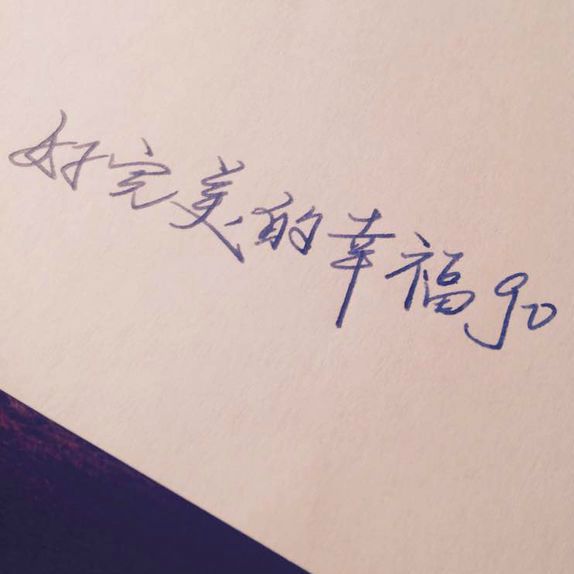 好完美的幸福go